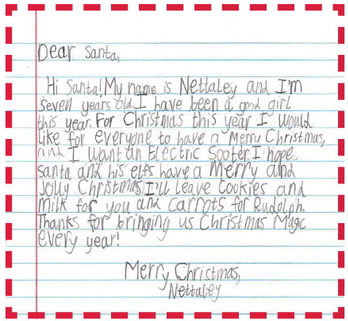 Dear Santa,
Hi Santa! My name is Nettaley and I'm
seven years old I have been a good girl
this year. For Christmas this year I would
like for everyone to have a Merry Christmas,
and I want an Electric Sooter. I hope
Santa and his elfs have a Merry and
Jolly Christmas. I'll leave Cookies and
milk for you and carrots for Rudolph.
Thanks for bringing us Christmas Magic
every year!
Merry Christmas,
Nettaley